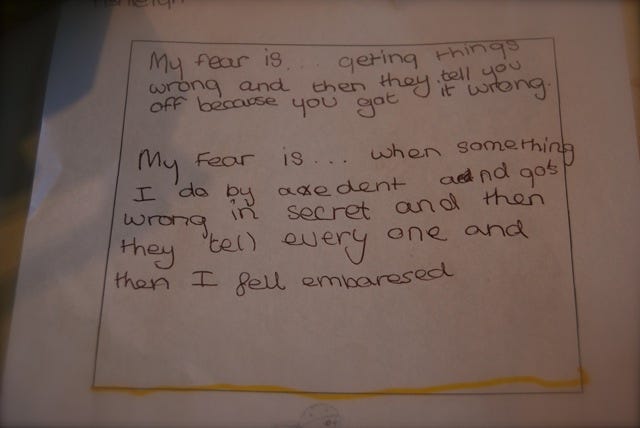 My fear is... geting things
wrong and then they tell you
off because you got it wrong.
My fear is... when something
I do by axedent and gos
wrong in secret and then
they tell every one and
then I fell embaresed